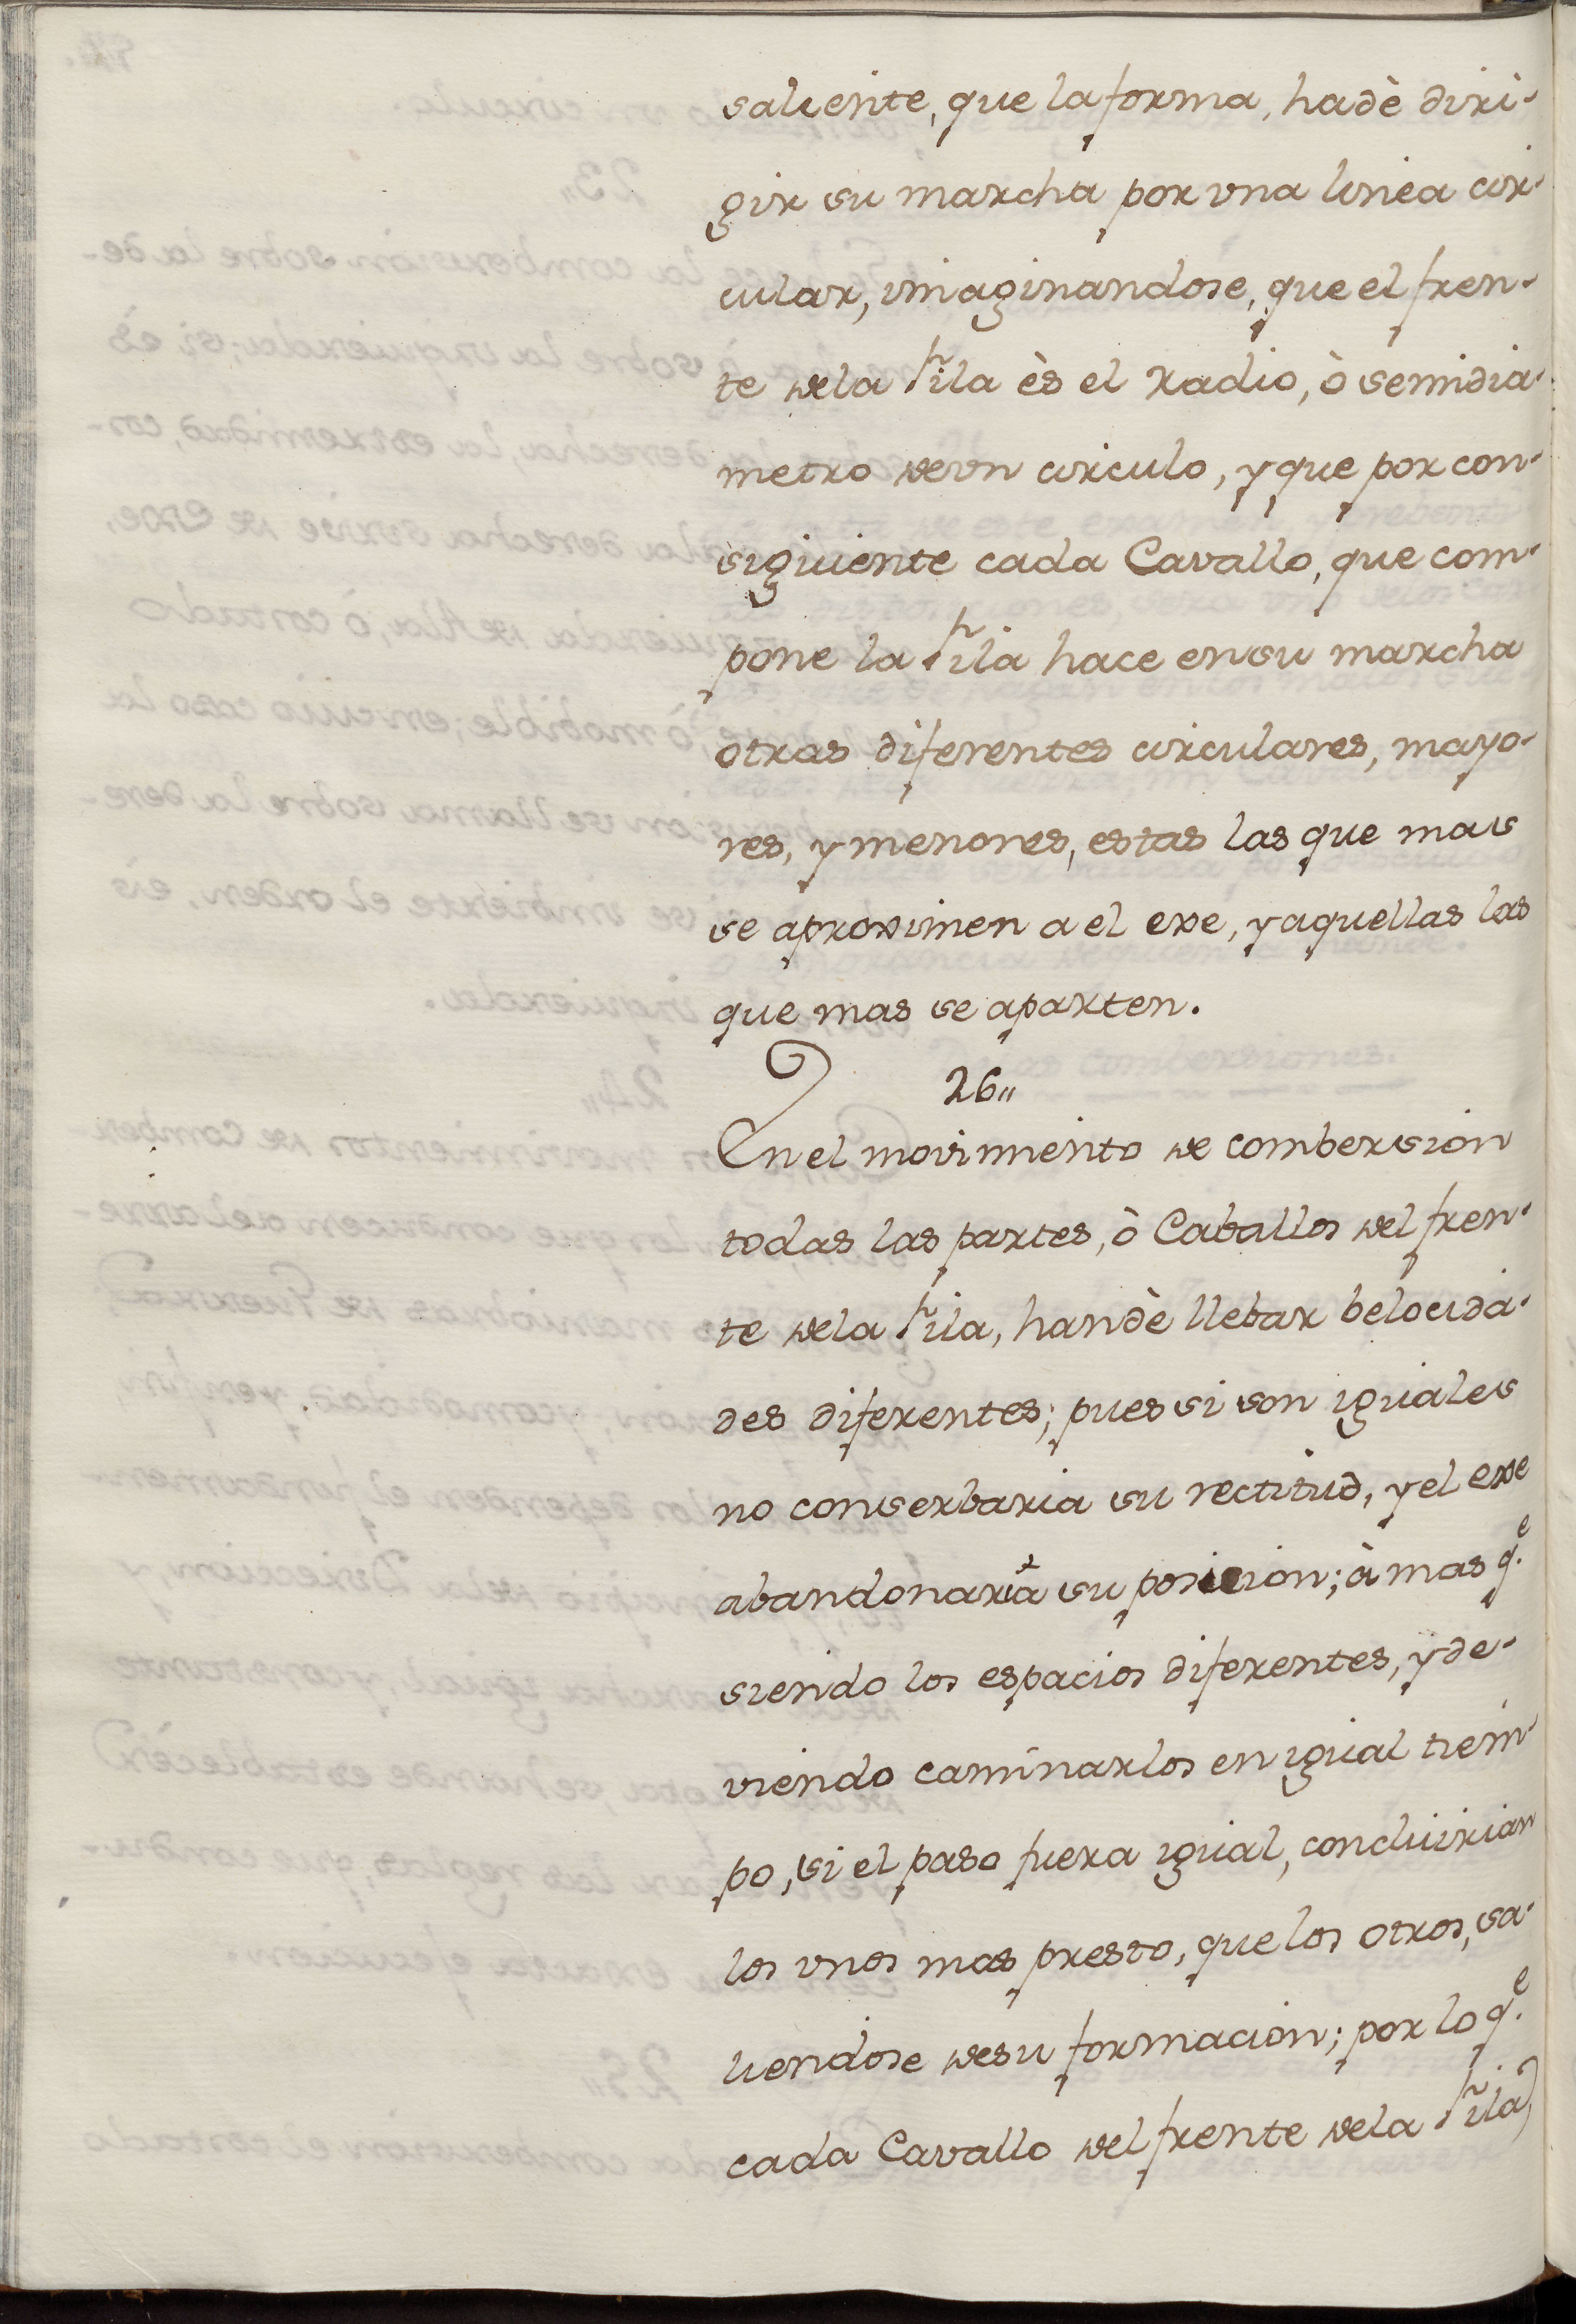 saliente, que la forma, hadè diri-
gir su marcha por vna linea cir-
cular, imaginandose, que el fren-
te dela fila ès el radio, ò semidia-
metro de vn circulo, y que por con-
siguiente cada Cavallo, que com-
pone la fila hace en su marcha
otras diferentes circulares, mayo-
res, y menores, estas las que mas
se aproximen a el exe, y aquellas las
que mas se aparten.
26,,
En el movimiento de combersion
todas las partes, ò Caballos del fren-
te dela fila, handè llebar belocida-
des diferentes; pues si son iguales
no conserbaria su rectitud, y el exe
abandonaria su posicion; à mas q.e
siendo los espacios diferentes, y de-
viendo caminarlos en igual tiem-
po, si el paso fuera igual, concluirian
los vnos mas presto, que los otros, sa-
liendose de su formacion; por lo q.e
cada Cavallo del frente dela fila,